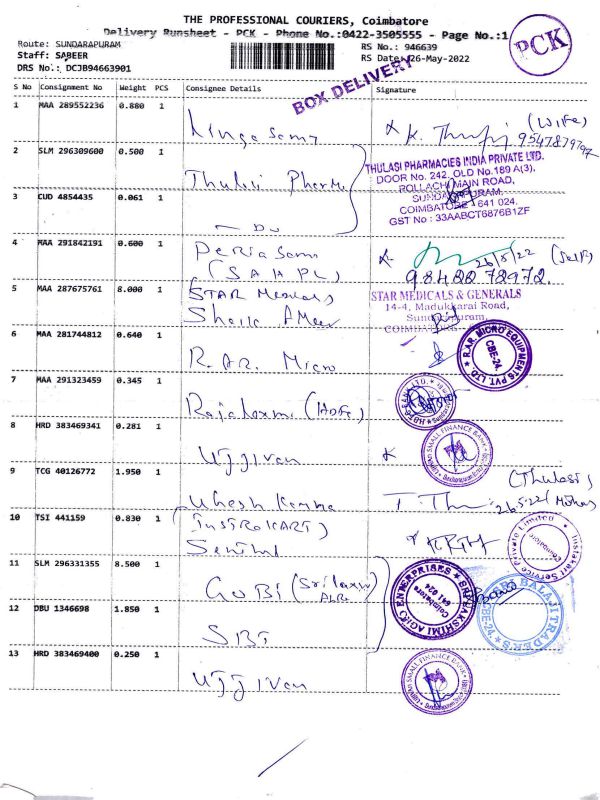 THE PROFESSIONAL COURIERS, Coimbatore
Delivery Runsheet - PCK - Phone No.:0422-3505555 - Page No.:1
Route: SUNDARAPURAM
RS No.: 946639
Staff: SABEER
RS Date: 26-May-2022
DRS No.: DCJB94663901
PCK
BOX DELIVERY
S No Consignment No Weight PCS Consignee Details Signature
1 MAA 289552236 0.880 1
(Wife)
2 SLM 296309600 0.500 1
Thulsi Pharma
THULASI PHARMACIES INDIA PRIVATE LTD.
DOOR No. 242, OLD No.189 A(3),
POLLACHI MAIN ROAD,
SUNDARAPURAM,
COIMBATORE - 641 024.
GST No : 33AABCT6876B1ZF
3 CUD 4854435 0.061 1
4 MAA 291842191 0.600 1
Peria Sami
26/5/22 (Self)
98422 72972.
5 MAA 287675761 8.000 1
STAR Medicals
STAR MEDICALS & GENERALS
14-4, Madukkarai Road,
Sundarapuram,
COIMBATORE
6 MAA 281744812 0.640 1
R.AR. Micro
R.A.R MICRO EQUIPMENTS PVT. LTD.
CBE-24.
7 MAA 291323459 0.345 1
Rajalaxmi (HDFC)
8 HRD 383469341 0.281 1
Ujjivan
UJJIVAN SMALL FINANCE BANK
9 TCG 40126772 1.950 1
(Thulasi,
10 TSI 441159 0.830 1
(INSTAKART)
Senthil
Instakart Service Private Limited
Coimbatore
11 SLM 296331355 8.500 1
GOBI
SRI LAKSHMI AGRO ENTERPRISES
Coimbatore
641 024
BALAJI TRADERS
CBE-24.
12 DBU 1346698 1.850 1
SBI
13 HRD 383469400 0.250 1
Ujjivan
UJJIVAN SMALL FINANCE BANK